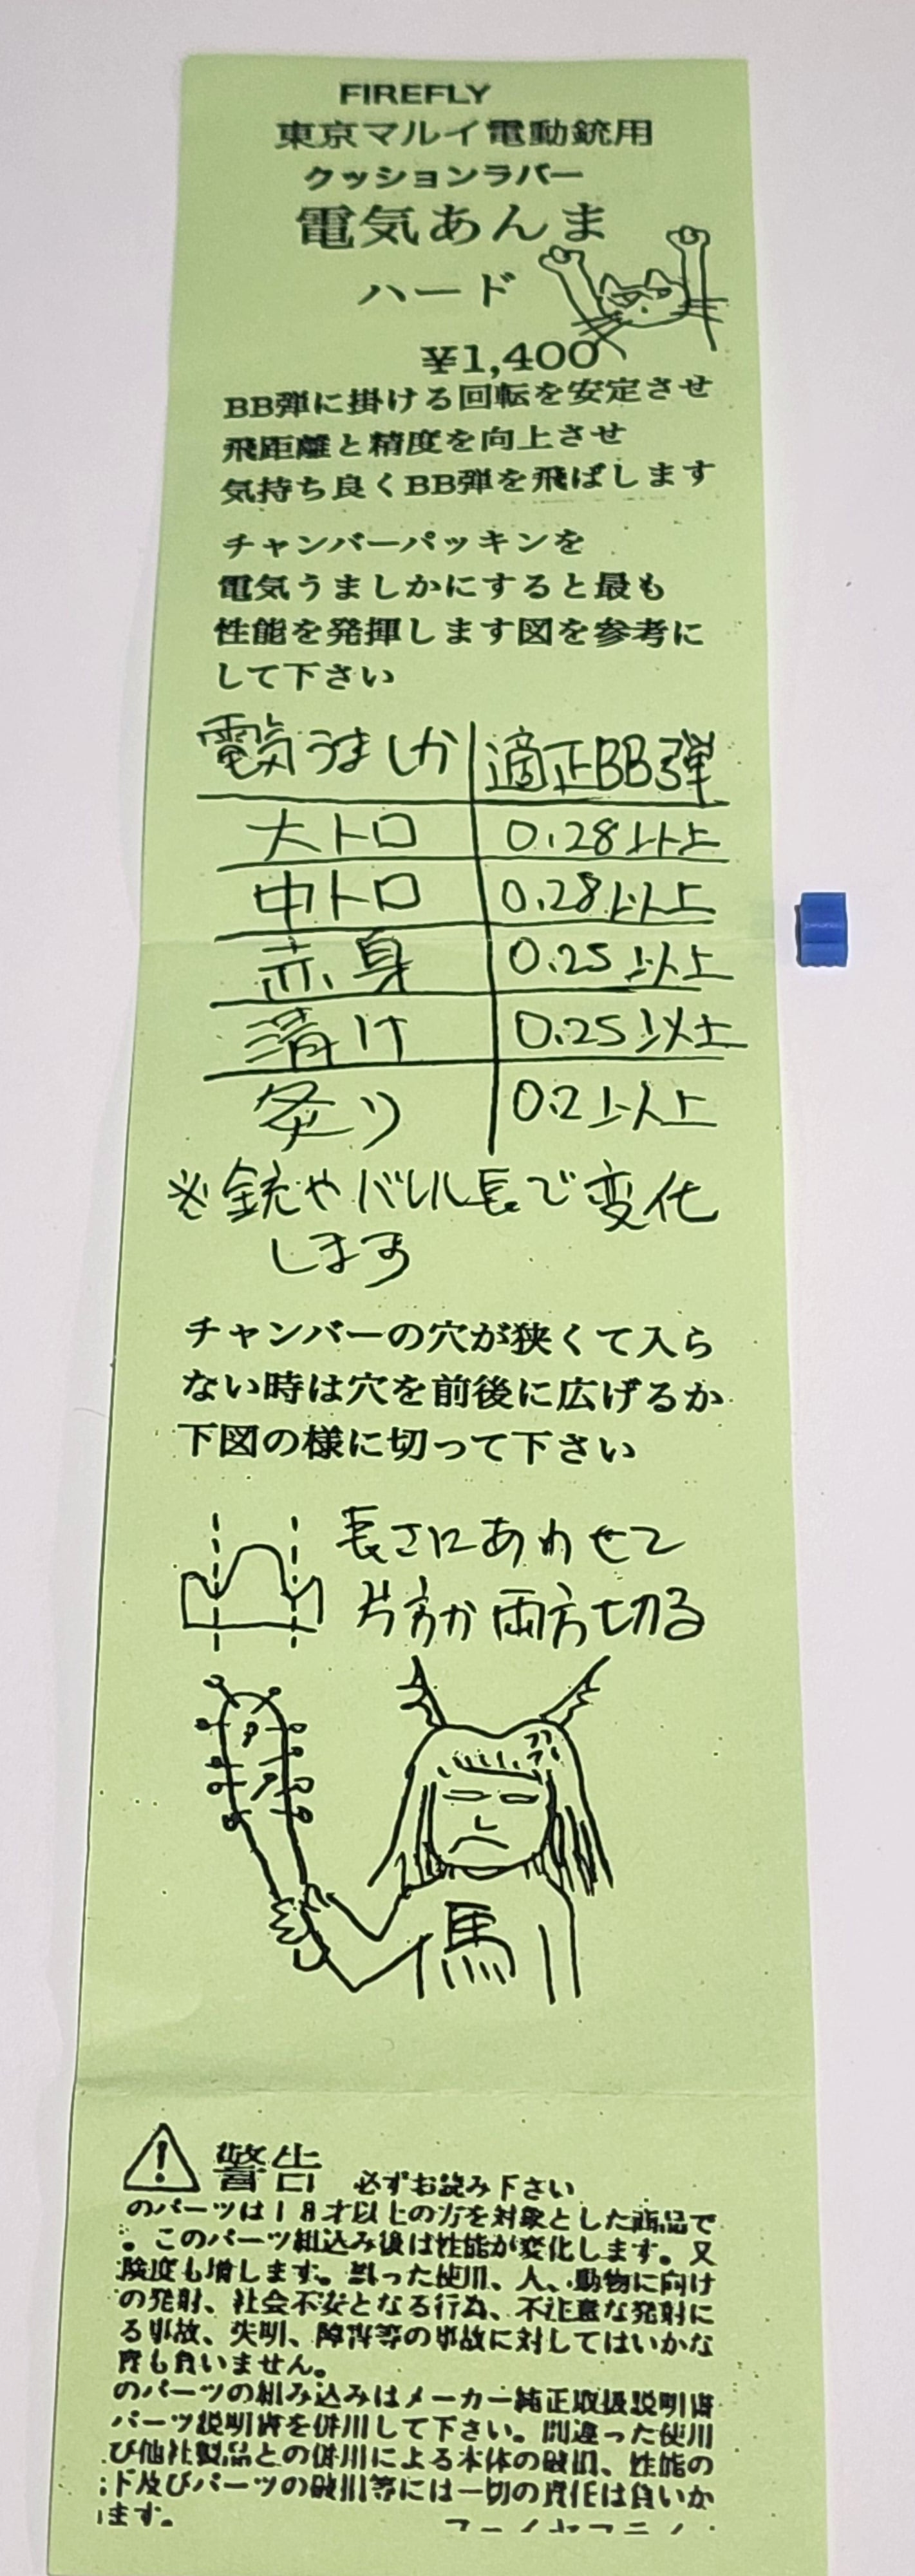 FIREFLY
東京マルイ電動銃用
クッションラバー
電気あんま
ハード
¥1,400
BB弾に掛ける回転を安定させ
飛距離と精度を向上させ
気持ち良くBB弾を飛ばします
チャンバーパッキンを
電気うましかにすると最も
性能を発揮します図を参考に
して下さい
電気うましか 適正BB弾
大トロ 0.28以上
中トロ 0.28以上
赤身 0.25以上
漬け 0.25以上
炙り 0.2以上
※銃やバレル長で変化
します
チャンバーの穴が狭くて入ら
ない時は穴を前後に広げるか
下図の様に切って下さい
長さにあわせて
片方か両方切る
馬
警告 必ずお読み下さい
のパーツは18才以上の方を対象とした商品で
。このパーツ組込み後は性能が変化します。又
険度も増します。誤った使用、人、動物に向け
の発射、社会不安となる行為、不注意な発射に
る事故、失明、障害等の事故に対してはいかな
責も負いません。
のパーツの組み込みはメーカー純正取扱説明書
パーツ説明書を併用して下さい。間違った使用
び他社製品との併用による本体の破損、性能の
下及びパーツの破損等には一切の責任は負いか
ます。